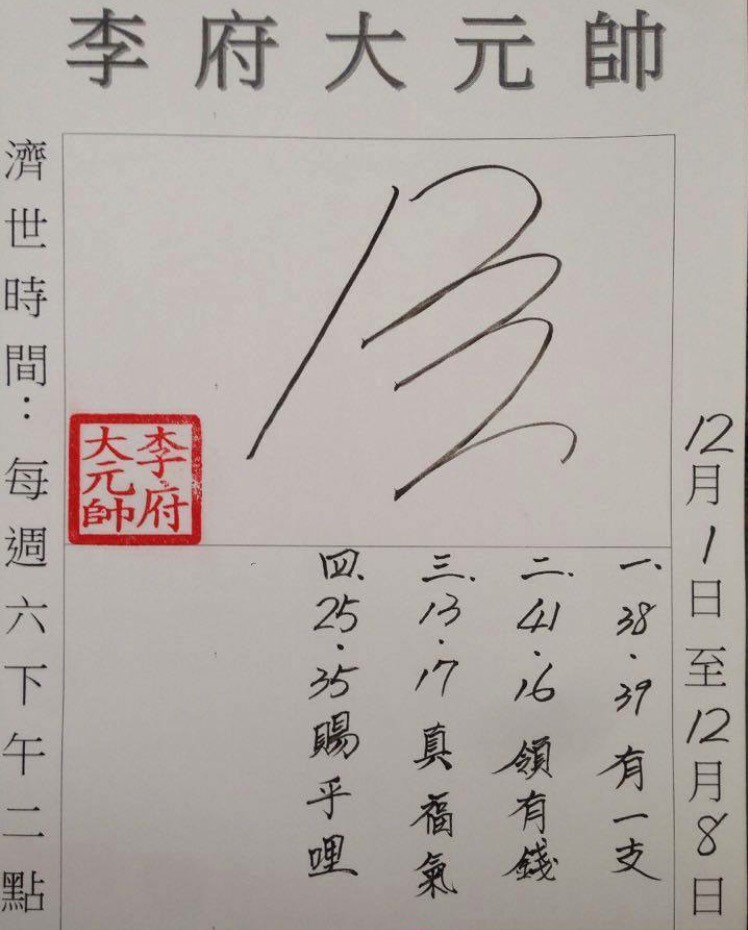 李府大元帥
12月1日至12月8日
一、38.39有一支
二、41.16領有錢
三、13.17真福氣
四、25.35賜乎哩
李府大元帥
濟世時間：每週六下午二點